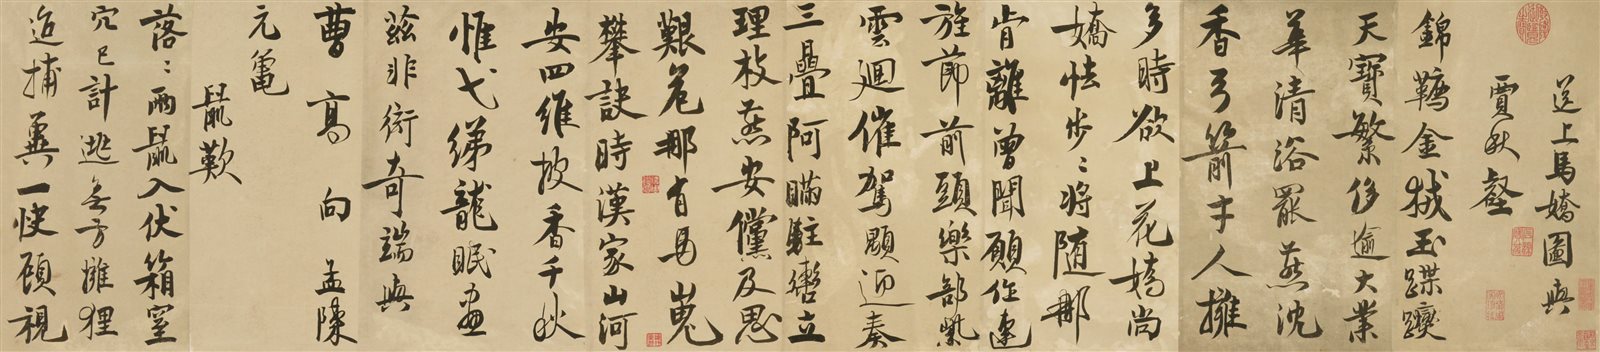 送上馬嬌圖與
賈秋壑
錦韉金拔玉蹀躞
天寶繁侈逾大業
華清浴罷燕沈
香弓箭才人擁
多時欲上花嬌尚
嬌怯步〻將随那
肯離曾聞願作連
旌節前頭樂部紫
雲迴催駕顋迎奏
三疊阿瞞駐轡立
理杖燕安儻及思
艱危那有馬嵬
攀訣時漢家山河
安四維披香千秋
惟弋绨龍眠畫
兹非衒奇端與
曹高向孟陳
元龜
鼠歎
落〻兩鼠入伏箱室
穴已計逃無方雖狸
追捕冀一快顧視